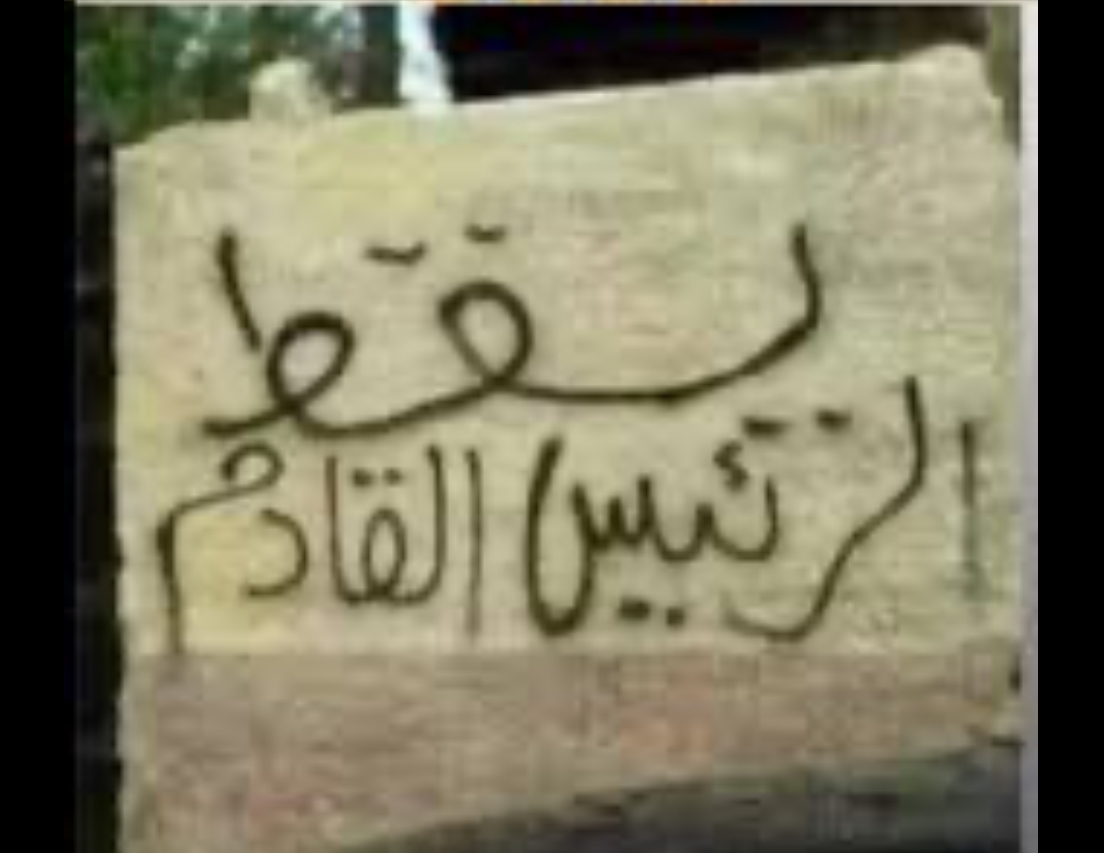 يسقط
الرئيس القادم